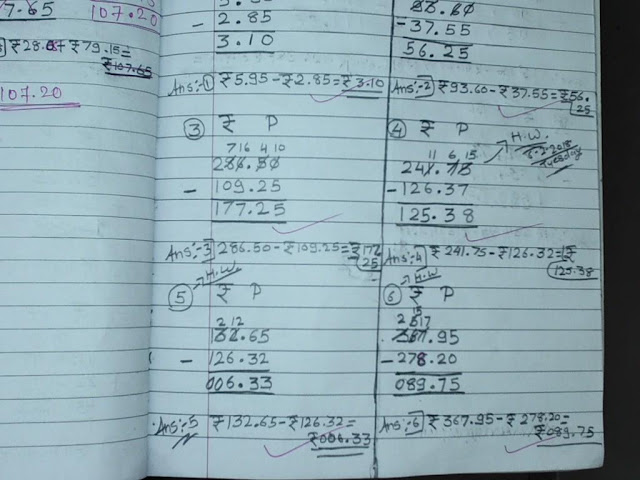 7.65
107.20
₹28.  + ₹79.15=
₹107.65
107.20
- 2.85
3.10
Ans:-① ₹5.95-₹2.85=₹3.10
-37.55
56.25
Ans:-2 ₹93.60-₹37.55=₹56.
25
③ ₹ P
7 16 4 10
286.50
- 109.25
177.25
Ans:-3 286.50-₹109.25=₹177
25
④ ₹ P
H.W.
6-2-2018
Tuesday
11 6 15
241.75
-126.37
125.38
Ans:-4 ₹241.75-₹126.32=₹
125.38
H.W
⑤ ₹ P
2 12
132.65
- 126.32
006.33
Ans:-5 ₹132.65-₹126.32=
₹006.33
H.W
⑥ ₹ P
15
2 6 17
367.95
-278.20
089.75
Ans:-6 ₹367.95-₹278.20=
₹089.75